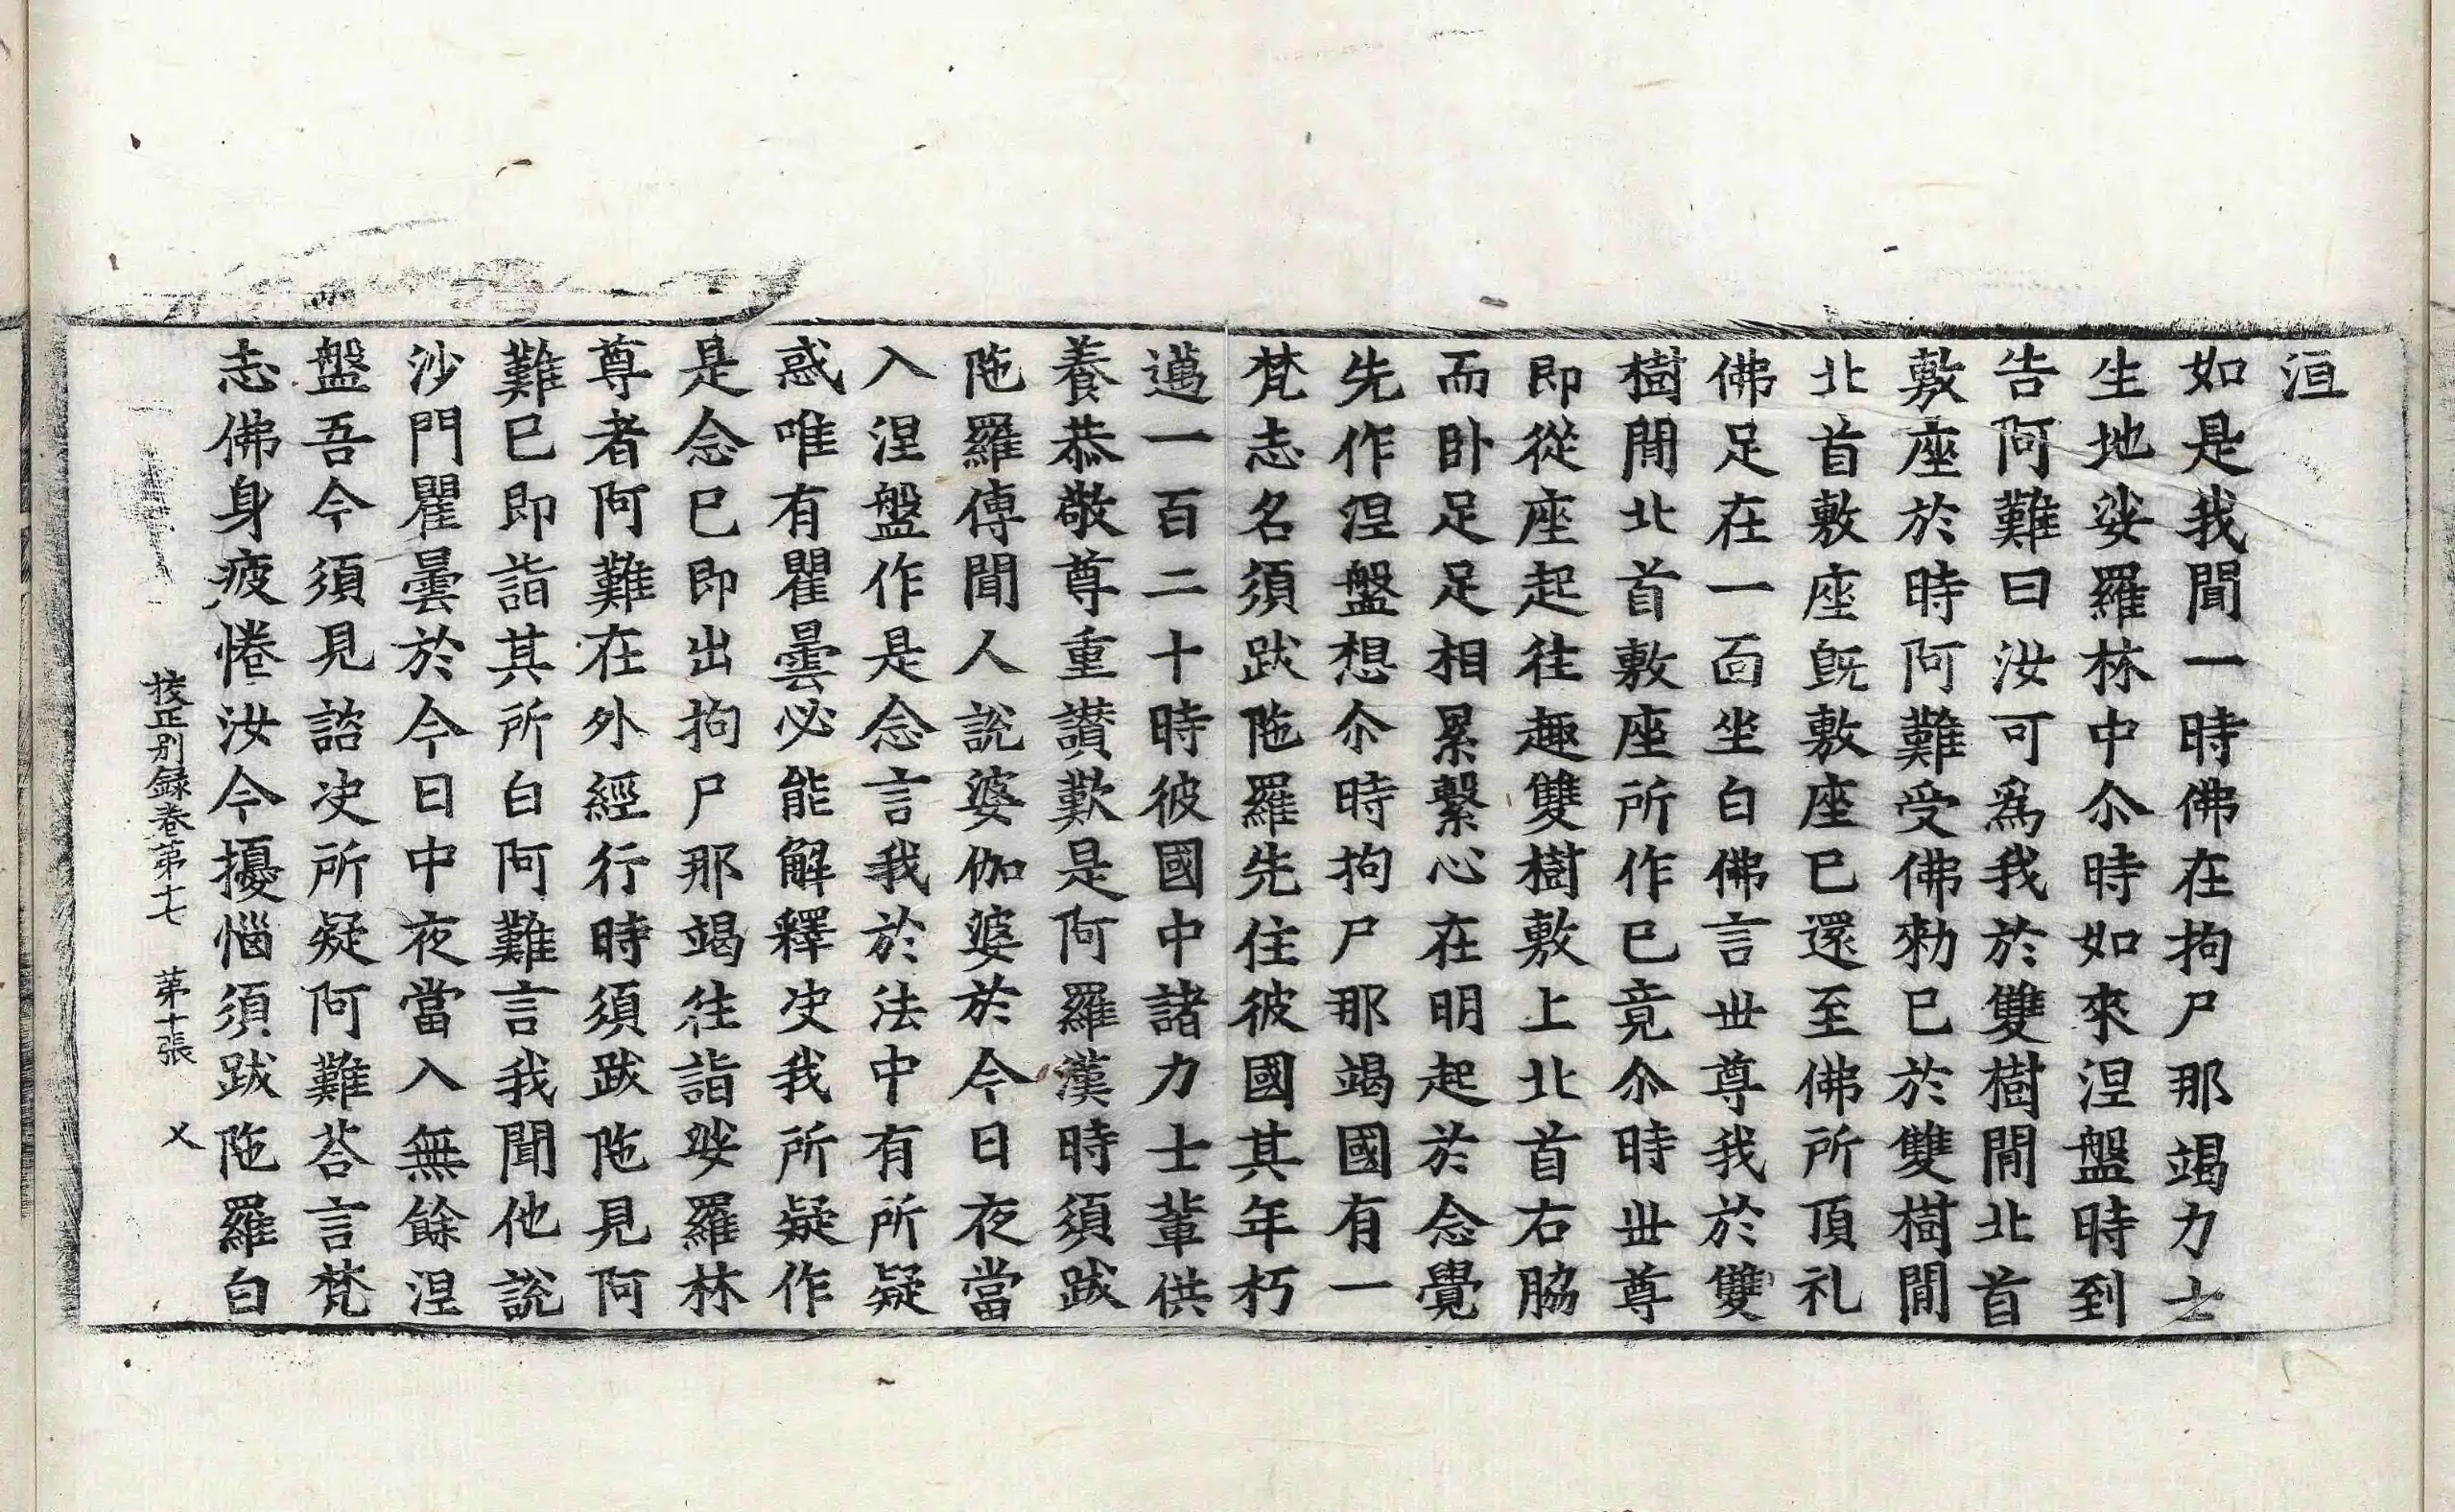 洹
如是我聞一時佛在拘尸那竭力士
生地娑羅林中尒時如來涅盤時到
告阿難曰汝可爲我於雙樹閒北首
敷座於時阿難受佛勑已於雙樹閒
北首敷座旣敷座已還至佛所頂礼
佛足在一面坐白佛言世尊我於雙
樹閒北首敷座所作已竟尒時世尊
即從座起往趣雙樹敷上北首右脇
而卧足足相累繫心在明起於念覺
先作涅盤想尒時拘尸那竭國有一
梵志名須跋陁羅先住彼國其年朽
邁一百二十時彼國中諸力士輩供
養恭敬尊重讃歎是阿羅漢時須跋
陁羅傳聞人說婆伽婆於今日夜當
入涅盤作是念言我於法中有所疑
惑唯有瞿曇必能解釋决我所疑作
是念已即出拘尸那竭往詣娑羅林
尊者阿難在外經行時須跋陁見阿
難已即詣其所白阿難言我聞他說
沙門瞿曇於今日中夜當入無餘涅
盤吾今須見諮决所疑阿難荅言梵
志佛身疲惓汝今擾惱須跋陁羅白
校正別錄卷第十七 第十張 㐅